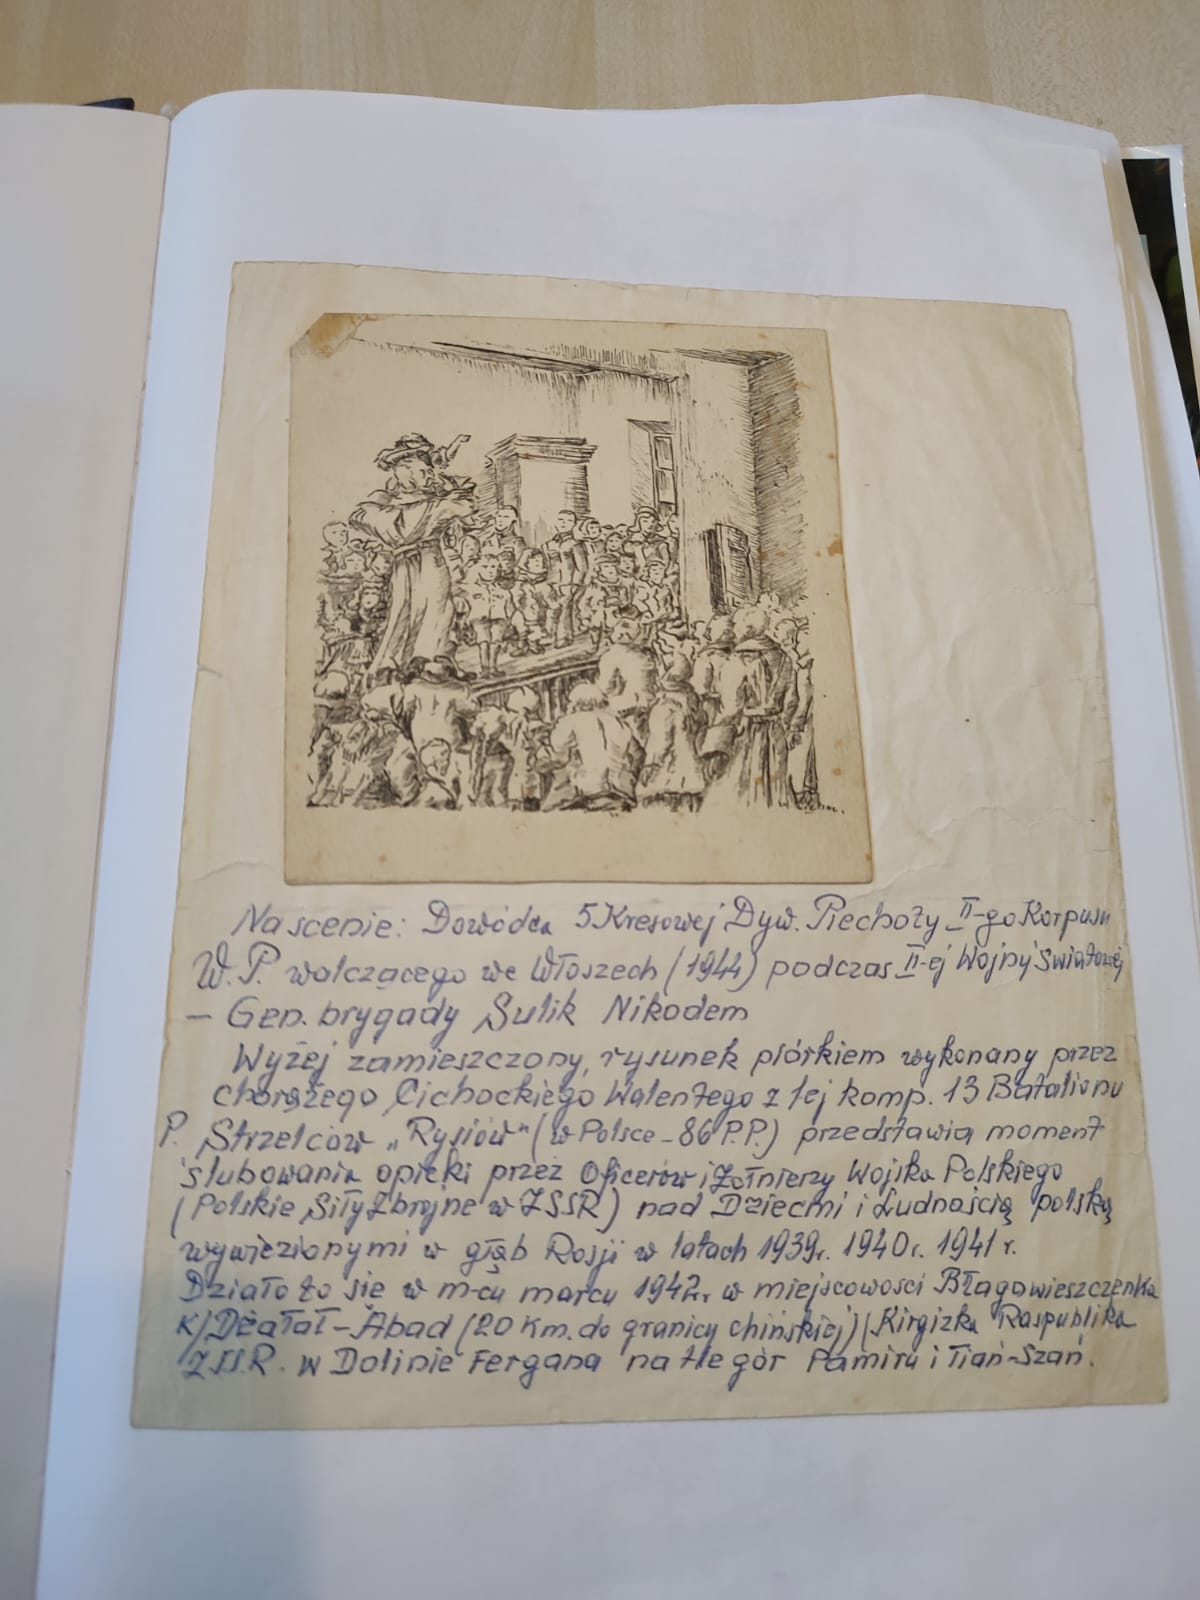 Na scenie: Dowódca 5 Kresowej Dyw. Piechoty II-go Korpusu
W. P. walczącego we Włoszech (1944) podczas II-ej Wojny Światowej
– Gen. brygady Sulik Nikodem
Wyżej zamieszczony, rysunek piórkiem wykonany przez
chorążego Cichockiego Walentego z tej komp. 13 Batalionu
P. Strzelców „Rysiów" (w Polsce – 86 P.P.) przedstawia moment
ślubowania opieki przez Oficerów i Żołnierzy Wojska Polskiego
(Polskie Siły Zbrojne w ZSSR) nad Dziećmi i Ludnością polską
wywiezionymi w głąb Rosji w latach 1939r. 1940r. 1941r.
Działo to się w m-cu marcu 1942r. w miejscowości Błagowieszczenka
k/Dżałał-Abad (20 km. do granicy chińskiej) (Kirgizka Raspublika
ZSSR. w Dolinie Fergana na tle gór Pamiru i Tiań-Szań.